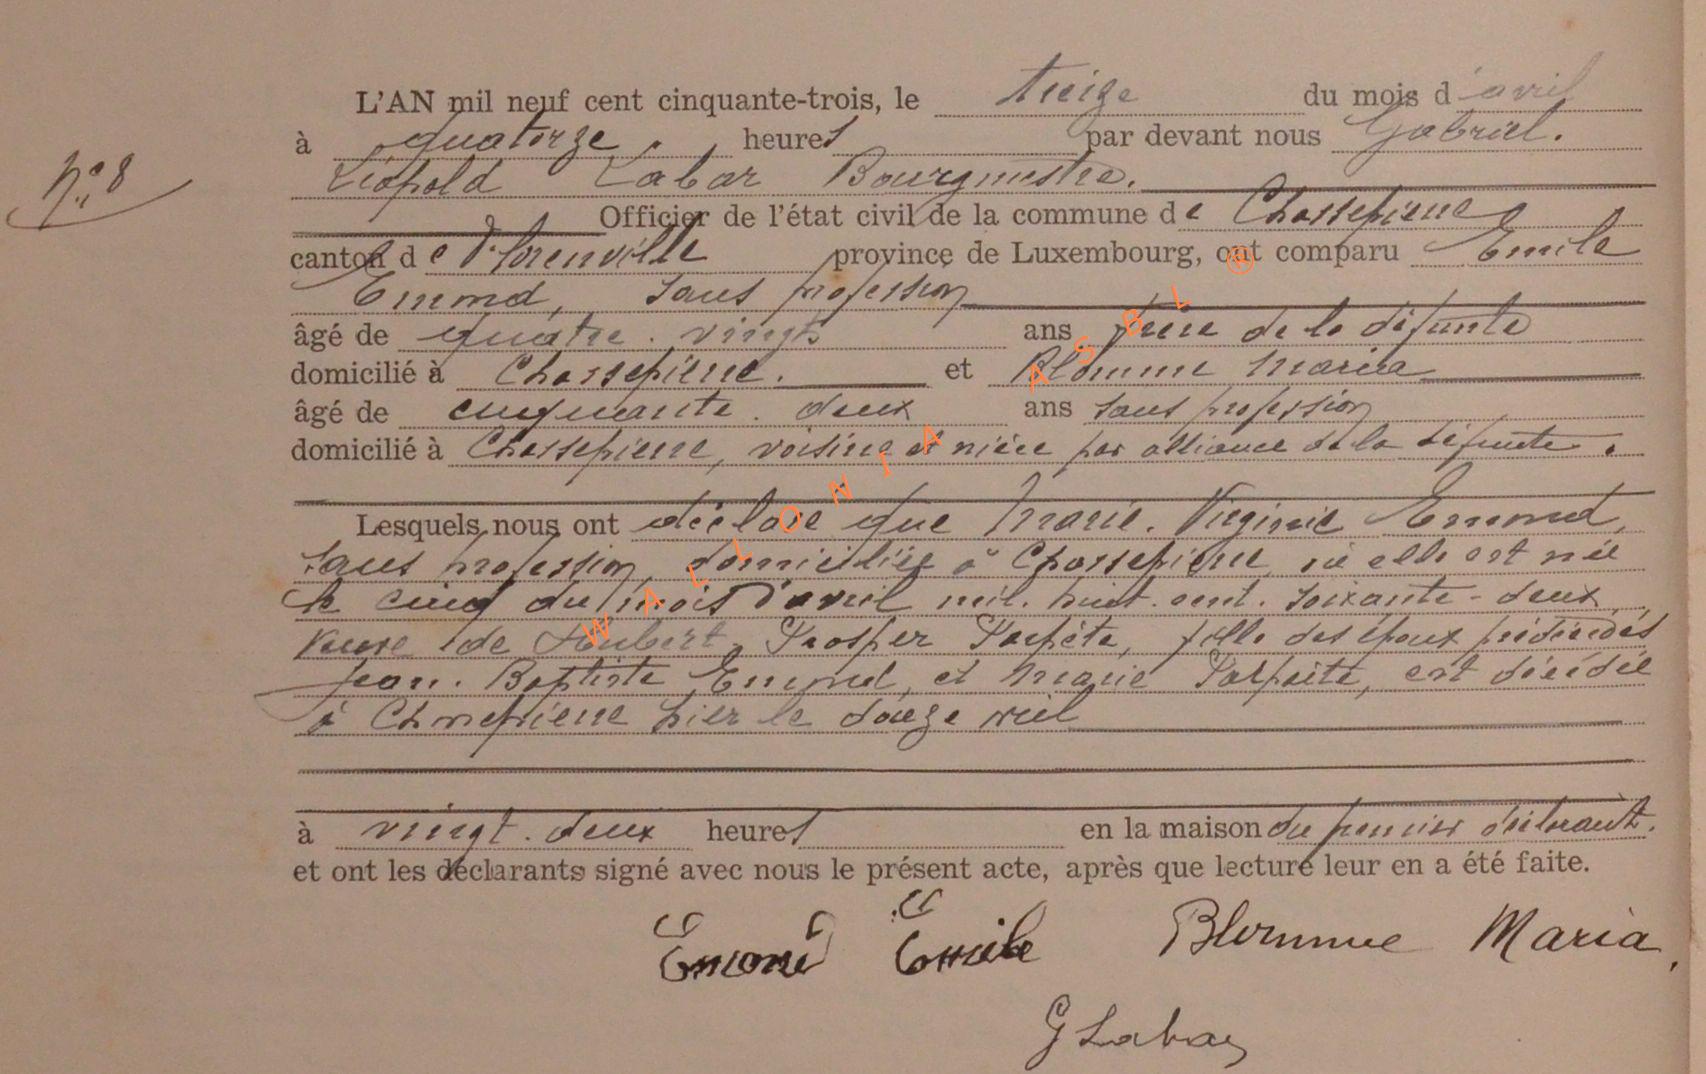 L'AN mil neuf cent cinquante-trois, le treize du mois d'avril
à quatorze heures par devant nous Gabriel.
N° 8
Léopold Labar Bourgmestre.
Officier de l'état civil de la commune de Chassepierre
canton de Florenville province de Luxembourg, ont comparu Emile
Emond, sans profession
âgé de quatre-vingts ans frère de la défunte
domicilié à Chassepierre. et Blomme Maria
âgé de cinquante-deux ans sans profession
domicilié à Chassepierre, voisine et nièce par alliance de la défunte.
Lesquels nous ont déclaré que Marie-Virginie Emond,
sans profession, domiciliée à Chassepierre, où elle est née
le cinq du mois d'avril mil-huit-cent-soixante-deux,
veuve de Hubert-Prosper Perpète, fille des époux prédécédés
Jean-Baptiste Emond, et Marie Parfaite, est décédée
à Chassepierre hier le douze avril
à vingt-deux heures en la maison du premier déclarant.
et ont les déclarants signé avec nous le présent acte, après que lecture leur en a été faite.
Emond Emile Blomme Maria
G Labar
WALLONIA ASBL ®